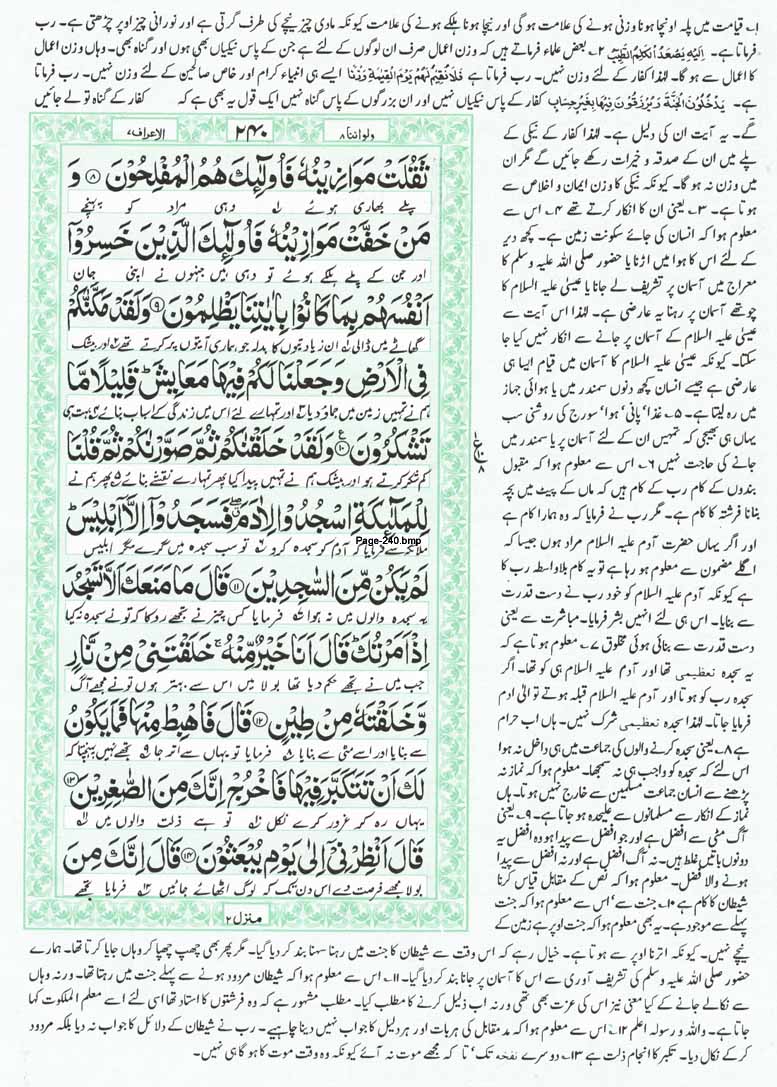 ۱؎ قیامت میں پلہ اونچا ہونا وزنی ہونے کی علامت ہوگی اور نیچا ہونا ہلکے ہونے کی علامت کیونکہ مادی چیز نیچے کی طرف گرتی ہے اور نورانی چیز اوپر چڑھتی ہے۔ رب
فرماتا ہے۔ اِلَیْهِ یَصْعَدُ الْکَلِمُ الطَّیِّبُ ۲؎ بعض علماء فرماتے ہیں کہ وزن اعمال صرف ان لوگوں کے لئے ہے جن کے پاس نیکیاں بھی ہوں اور گناہ بھی۔ وہاں وزن
کا اعمال سے ہو گا۔ لہٰذا کفار کے لئے وزن نہیں۔ رب فرماتا ہے فَلَا نُقِیْمُ لَهُمْ یَوْمَ الْقِیٰمَةِ وَزْنًا ایسے ہی انبیاء کرام اور خاص صالحین کے لئے وزن نہیں۔ رب فرماتا
ہے۔ یَدْخُلُوْنَ الْجَنَّةَ وَ یُرْزَقُوْنَ فِیْهَا بِغَیْرِ حِسَابٍ کفار کے پاس نیکیاں نہیں اور ان بزرگوں کے پاس گناہ نہیں ایک قول یہ بھی ہے کہ کفار کے گناہ تو لے جائیں
ولواننا ۸
۲۴۰
الاعراف ۷
ثَقُلَتْ مَوَازِیْنُهٗ فَاُولٰٓئِكَ هُمُ الْمُفْلِحُوْنَ ۸ وَ
پلے بھاری ہوئے وہی مراد کو پہنچے
مَنْ خَفَّتْ مَوَازِیْنُهٗ فَاُولٰٓئِكَ الَّذِیْنَ خَسِرُوْۤا
اور جن کے پلے ہلکے ہوئے تو وہی ہیں جنہوں نے اپنی جان
اَنْفُسَهُمْ بِمَا كَانُوْا بِاٰیٰتِنَا یَظْلِمُوْنَ ۹ وَ لَقَدْ مَكَّنّٰكُمْ
گھاٹے میں ڈالی ان زیادتیوں کا بدلہ جو ہماری آیتوں پر کرتے تھے اور بیشک
فِی الْاَرْضِ وَ جَعَلْنَا لَكُمْ فِیْهَا مَعَایِشَ قَلِیْلًا مَّا
ہم نے تمہیں زمین میں جماؤ دیا اور تمہارے لئے اس میں زندگی کے اسباب بنائے بہت ہی
تَشْكُرُوْنَ ۱۰ وَ لَقَدْ خَلَقْنٰكُمْ ثُمَّ صَوَّرْنٰكُمْ ثُمَّ قُلْنَا
کم شکر کرتے ہو اور بیشک ہم نے تمہیں پیدا کیا پھر تمہارے نقشے بنائے پھر ہم نے
لِلْمَلٰٓئِكَةِ اسْجُدُوْا لِاٰدَمَ فَسَجَدُوْۤا اِلَّاۤ اِبْلِیْسَ
ملائکہ سے فرمایا کہ آدم کو سجدہ کرو تو سب سجدہ میں گرے مگر ابلیس
Page-240.bmp
لَمْ یَكُنْ مِّنَ السّٰجِدِیْنَ ۱۱ قَالَ مَا مَنَعَكَ اَلَّا تَسْجُدَ
یہ سجدہ والوں میں نہ ہوا فرمایا کس چیز نے تجھے روکا کہ تو نے سجدہ نہ کیا
اِذْ اَمَرْتُكَ قَالَ اَنَا خَیْرٌ مِّنْهُ خَلَقْتَنِیْ مِنْ نَّارٍ
جب میں نے تجھے حکم دیا تھا بولا میں اس سے بہتر ہوں تو نے مجھے آگ
وَّ خَلَقْتَهٗ مِنْ طِیْنٍ ۱۲ قَالَ فَاهْبِطْ مِنْهَا فَمَا یَكُوْنُ
سے بنایا اور اسے مٹی سے بنایا فرمایا تو یہاں سے اتر جا تجھے نہیں پہنچتا کہ
لَكَ اَنْ تَتَكَبَّرَ فِیْهَا فَاخْرُجْ اِنَّكَ مِنَ الصّٰغِرِیْنَ ۱۳
یہاں رہ کر غرور کرے نکل تو ہے ذلت والوں میں
قَالَ اَنْظِرْنِیْۤ اِلٰی یَوْمِ یُبْعَثُوْنَ ۱۴ قَالَ اِنَّكَ مِنَ
بولا مجھے فرصت دے اس دن تک کہ لوگ اٹھائے جائیں فرمایا تجھے
منزل ۲
ع ۸
گے۔ یہ آیت ان کی دلیل ہے۔ لہٰذا کفار کے نیکی کے
پلے میں ان کے صدقہ و خیرات رکھے جائیں گے مگر ان
میں وزن نہ ہو گا۔ کیونکہ نیکی کا وزن ایمان و اخلاص سے
ہوتا ہے۔ ۳؎ یعنی ان کا انکار کرتے تھے ۴؎ اس سے
معلوم ہوا کہ انسان کی جائے سکونت زمین ہے۔ کچھ دیر
کے لئے اس کا ہوا میں اڑنا یا حضور صلی اللہ علیہ وسلم کا
معراج میں آسمان پر تشریف لے جانا یا عیسیٰ علیہ السلام کا
چوتھے آسمان پر رہنا یہ عارضی ہے۔ لہٰذا اس آیت سے
عیسیٰ علیہ السلام کے آسمان پر جانے سے انکار نہیں کیا جا
سکتا۔ کیونکہ عیسیٰ علیہ السلام کا آسمان میں قیام ایسا ہی
عارضی ہے جیسے انسان کچھ دنوں سمندر میں یا ہوائی جہاز
میں رہ لیتا ہے۔ ۵؎ غذا' پانی' ہوا' سورج کی روشنی سب
یہاں ہی بھیجی کہ تمہیں ان کے لئے آسمان پر یا سمندر میں
جانے کی حاجت نہیں ۶؎ اس سے معلوم ہوا کہ مقبول
بندوں کے کام رب کے کام ہیں کہ ماں کے پیٹ میں بچہ
بنانا فرشتہ کا کام ہے۔ مگر رب نے فرمایا کہ وہ ہمارا کام ہے
اور اگر یہاں حضرت آدم علیہ السلام مراد ہوں جیسا کہ
اگلے مضمون سے معلوم ہو رہا ہے تو یہ کام بلاواسطہ رب کا
ہے کیونکہ آدم علیہ السلام کو خود رب نے دست قدرت
سے بنایا۔ اس ہی لئے انہیں بشر فرمایا۔ مباشرت سے یعنی
دست قدرت سے بنائی ہوئی مخلوق ۷؎ معلوم ہوتا ہے کہ
یہ سجدہ تعظیمی تھا اور آدم علیہ السلام ہی کو تھا۔ اگر
سجدہ رب کو ہوتا اور آدم علیہ السلام قبلہ ہوتے تو الیٰ ادم
فرمایا جاتا۔ لہٰذا سجدہ تعظیمی شرک نہیں۔ ہاں اب حرام
ہے ۸؎ یعنی سجدہ کرنے والوں کی جماعت میں ہی داخل نہ ہوا
اس لئے کہ سجدہ کو واجب ہی نہ سمجھا۔ معلوم ہوا کہ نماز نہ
پڑھنے سے انسان جماعت مسلمین سے خارج نہیں ہوتا۔ ہاں
نماز کے انکار سے مسلمانوں سے علیحدہ ہو جاتا ہے۔ ۹؎ یعنی
آگ مٹی سے افضل ہے اور جو افضل سے پیدا ہو وہ افضل یہ
دونوں باتیں غلط ہیں۔ نہ آگ افضل ہے اور نہ افضل سے پیدا
ہونے والا افضل۔ معلوم ہوا کہ نص کے مقابل قیاس کرنا
شیطان کا کام ہے ۱۰؎ جنت سے' اس سے معلوم ہوا کہ جنت
پہلے سے موجود ہے۔ یہ بھی معلوم ہوا کہ جنت اوپر ہے زمین کے
نیچے نہیں۔ کیونکہ اترنا اوپر سے ہوتا ہے۔ خیال رہے کہ اس وقت سے شیطان کا جنت میں رہنا سہنا بند کر دیا گیا۔ مگر پھر بھی چھپ چھپا کر وہاں جایا کرتا تھا۔ ہمارے
حضور صلی اللہ علیہ وسلم کی تشریف آوری سے اس کا آسمان پر جانا بند کر دیا گیا۔ ۱۱؎ اس سے معلوم ہوا کہ شیطان مردود ہونے سے پہلے جنت میں رہتا تھا۔ ورنہ وہاں
سے نکالے جانے کے کیا معنی نیز اس کی عزت بھی تھی ورنہ اب ذلیل کرنے کا مطلب کیا۔ مطلب مشہور ہے کہ وہ فرشتوں کا استاد تھا اسی لئے اسے معلم الملکوت کہا
جاتا ہے۔ واللہ و رسولہ اعلم ۱۲؎ اس سے معلوم ہوا کہ مد مقابل کی ہر بات اور ہر دلیل کا جواب نہیں دینا چاہیے۔ رب نے شیطان کے دلائل کا جواب نہ دیا بلکہ مردود
کر کے نکال دیا۔ تکبر کا انجام ذلت ہے ۱۳؎ دوسرے نفخہ تک' تا کہ مجھے موت نہ آئے کیونکہ وہ وقت موت کا ہو گا ہی نہیں۔